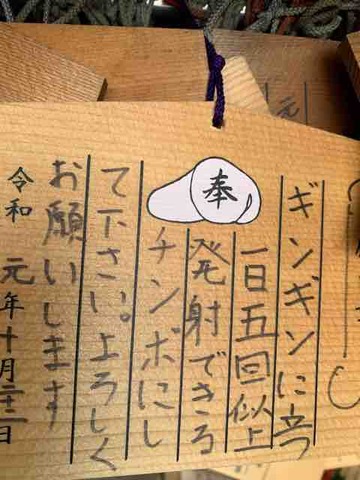 奉
ギンギンに立つ
一日五回以上
発射できる
チンポにし
て下さい。よろしく
お願いします
令和元年十月二十三日